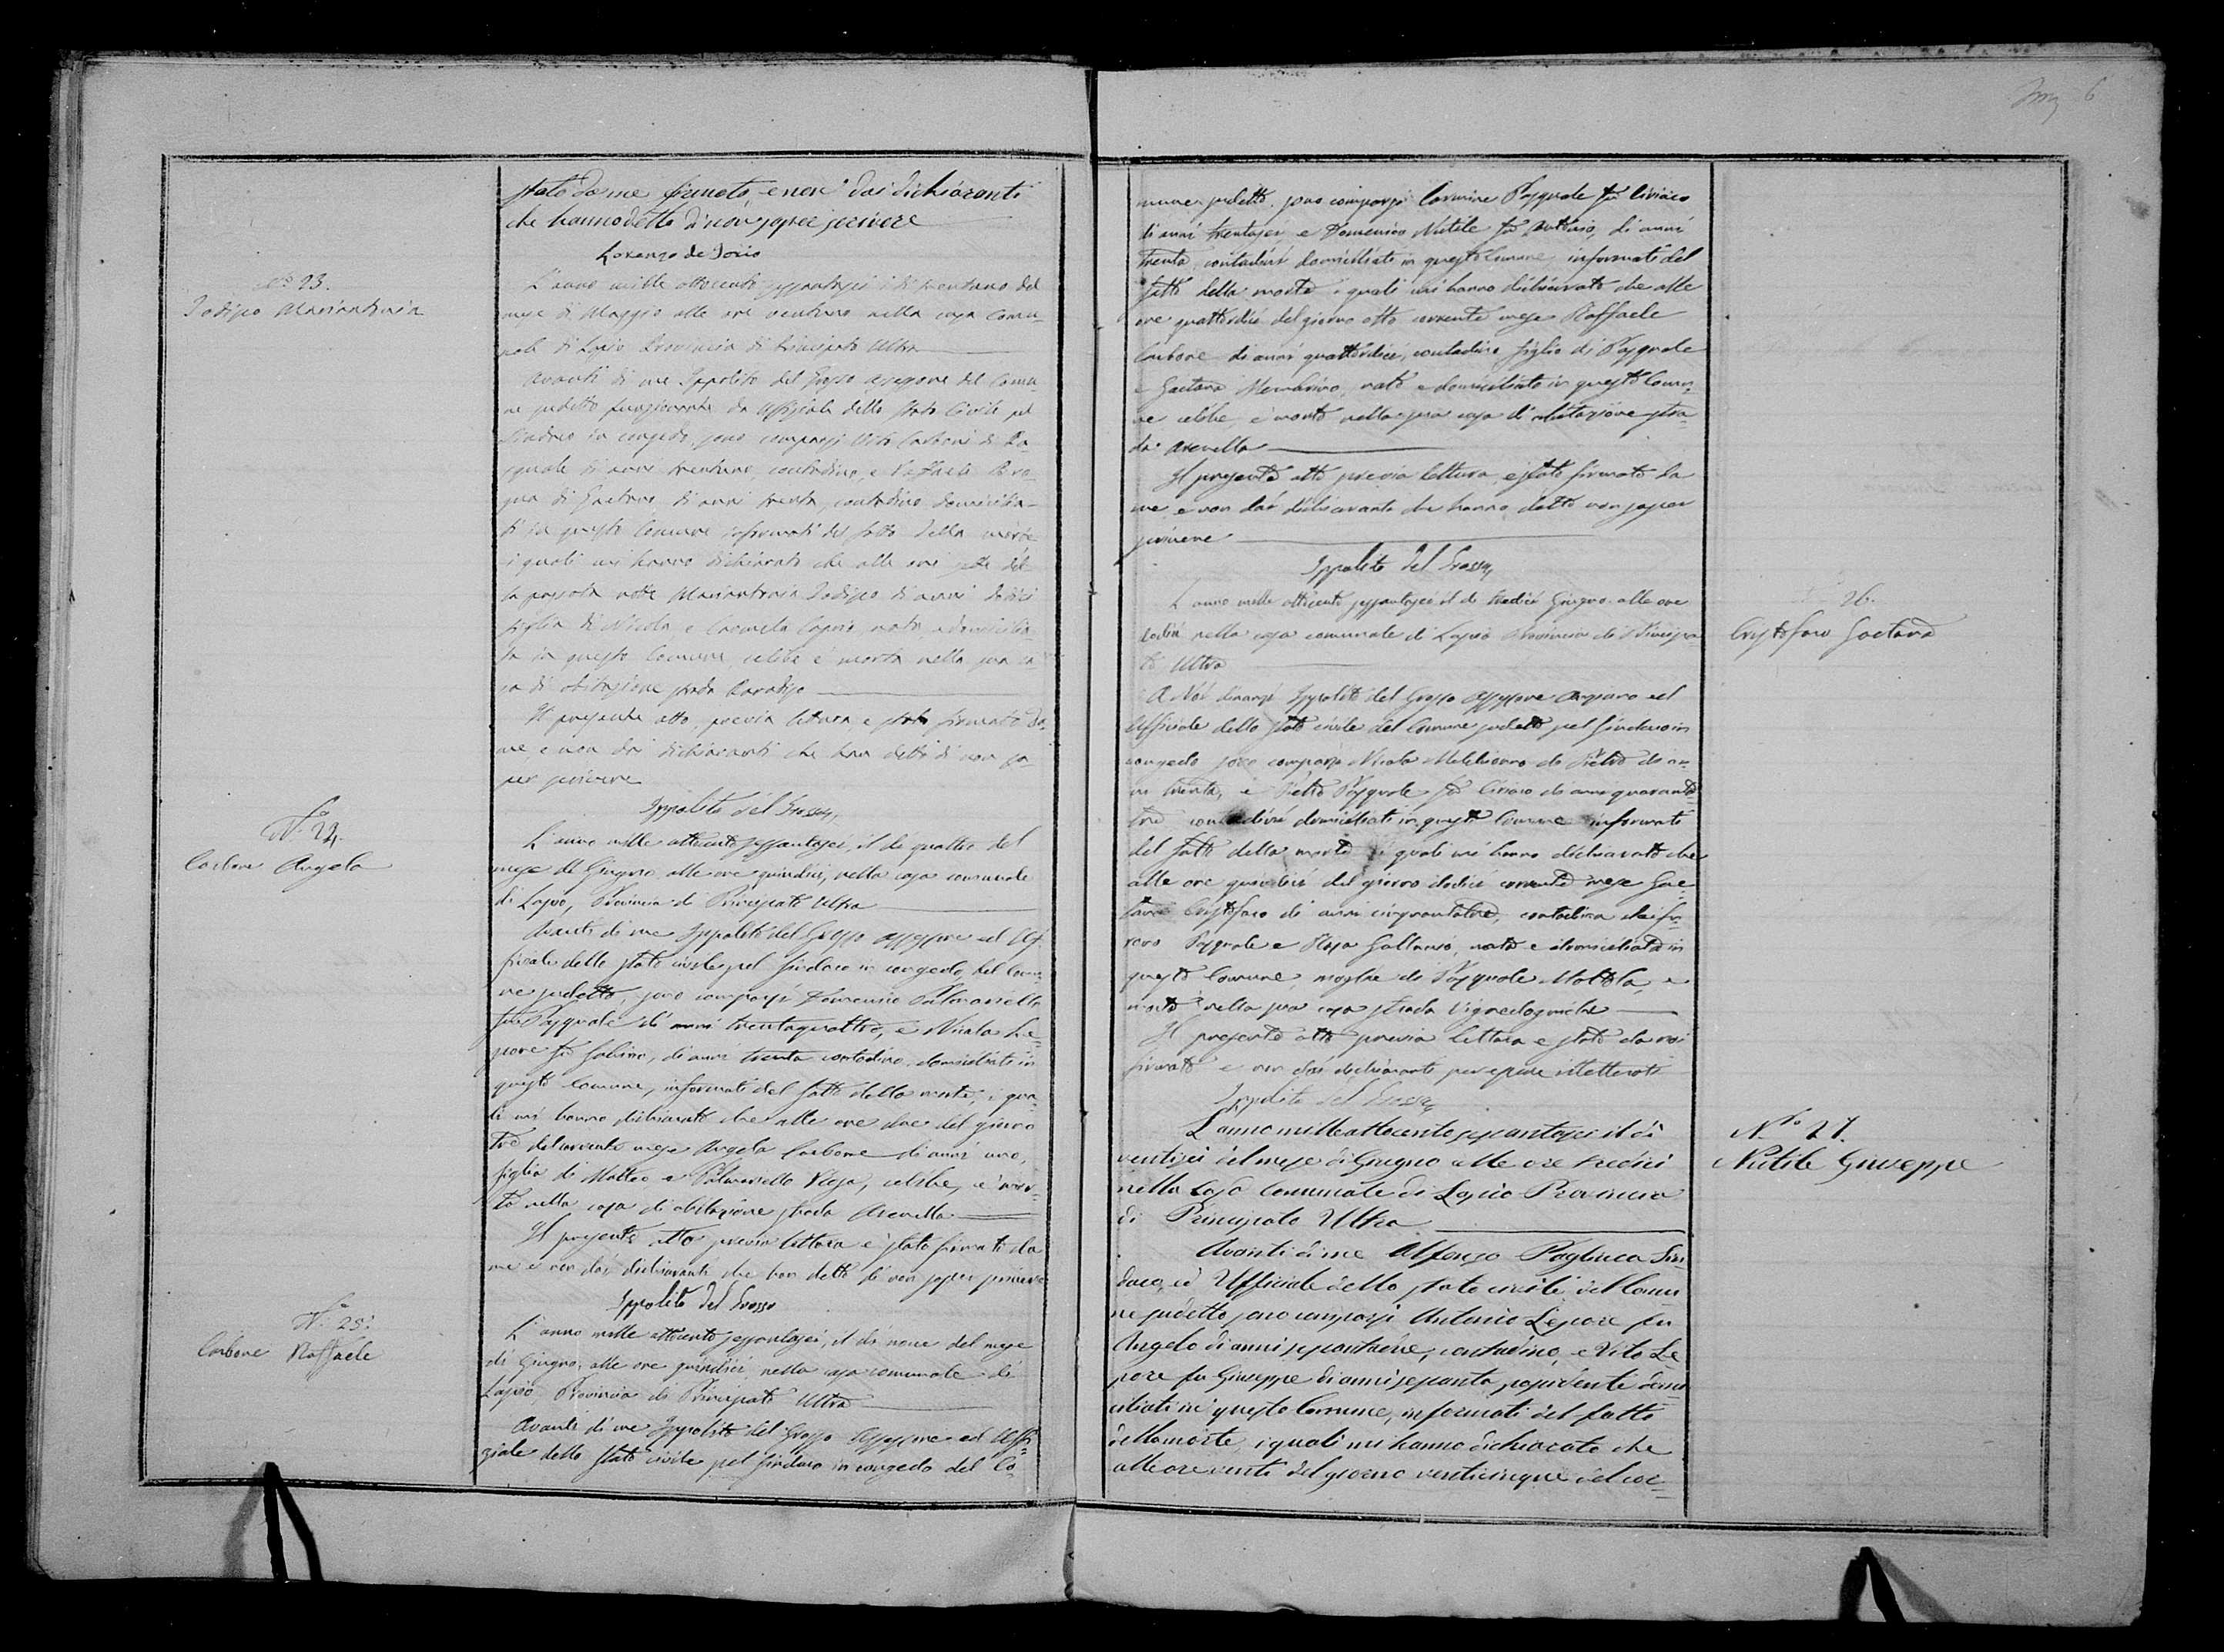 6
stato da me firmato, e non dai dichiaranti
che hanno detto di non saper scrivere
Lorenzo de Iorio
Nº 23.
Iodipo Mariantonia
L'anno mille ottocento sessantasei il dì trentuno del
mese di Maggio alle ore ventuno nella casa Comu-
nale di Lapio Provincia di Principato Ultra
Avanti di me Ippolito del Grosso assessore del Comu
ne sudetto funzionante da Uffiziale dello Stato Civile pel
Sindaco in congedo, sono comparsi Vito Carbone di Pa-
squale di anni trentuno, contadino, e Raffaele
di Gaetano di anni trenta, contadino domicilia-
ti in questo Comune informati del fatto della morte
i quali mi hanno dichiarato che alle ore sette del-
la passata notte Mariantonia Iodipo di anni dodici
figlia di Nicola, e Carmela Caprio, nata e domicilia-
ta in questo Comune, celibe è morta nella sua ca
sa di abitazione strada Paradiso
Il presente atto, previa lettura, è stato firmato da
me, e non dai dichiaranti che han detto di non sa-
per scrivere
Ippolito del Grosso
Nº 24.
Carbone Angela
L'anno mille ottocento sessantasei, il dì quattro del
mese di Giugno alle ore quindici, nella casa comunale
di Lapio, Provincia di Principato Ultra
Avanti di me Ippolito del Grosso assessore ed Uf-
ficiale dello stato civile pel Sindaco in congedo, del Comu-
ne sudetto, sono comparsi Domenico Palmariello
fu Pasquale di anni trentaquattro, e Nicola Le-
pore fu Sabino, di anni trenta contadino, domiciliati in
questo Comune, informati del fatto della morte, i qua-
li mi hanno dichiarato che alle ore due del giorno
tre del corrente mese Angela Carbone di anni uno,
figlia di Matteo e Palmariello Rosa, celibe, è mor-
ta nella casa di abitazione strada Arenella
Il presente atto previa lettura è stato firmato da
me e non dai dichiaranti che han detto di non saper scrivere
Ippolito del Grosso
Nº 25.
Carbone Raffaele
L'anno mille ottocento sessantasei, il dì nove del mese
di Giugno, alle ore quindici nella casa comunale di
Lapio, Provincia di Principato Ultra
Avanti di me Ippolito del Grosso assessore ed Uffi-
ziale dello stato civile pel Sindaco in congedo del Co-
mune sudetto. sono comparsi Carmine Pasquale fu Ciriaco
di anni trentasei, e Domenico Nutile fu Antonio, di anni
trenta, contadini domiciliati in questo Comune, informati del
fatto della morte i quali mi hanno dichiarato che alle
ore quattordici del giorno otto corrente mese Raffaele
Carbone di anni quattordici, contadino figlio di Pasquale
e Gaetana, nato e domiciliato in questo Comu-
ne celibe, è morto nella sua casa di abitazione stra-
da Arenella
Il presente atto previa lettura, è stato firmato da
me e non dai dichiaranti che hanno detto non saper
scrivere
Ippolito del Grosso
26.
Cristofaro Gaetana
L'anno mille ottocento sessantasei il dì tredici Giugno alle ore
dodici nella casa comunale di Lapio Provincia di Principa
to Ultra
A Noi dinanzi Ippolito del Grosso Assessore Anziano ed
Ufficiale dello stato civile del Comune sudetto pel Sindaco in
congedo sono comparsi Nicola di Pietro di an-
ni trenta, e Pietro Pasquale fu Ciriaco di anni quaranta-
tre contadini domiciliati in questo Comune informati
del fatto della morte i quali mi hanno dichiarato che
alle ore quindici del giorno dodici corrente mese Gae-
tana Cristofaro di anni cinquantatre, contadina dai fu-
rono Pasquale e Rosa, nata e domiciliata in
questo Comune, moglie di Pasquale Mottola, è
morta nella sua casa strada
Il presente atto previa lettura è stato da noi
firmato e non dai dichiaranti per essere illetterati
Ippolito del Grosso
Nº 27.
Nutile Giuseppe
L'anno mille ottocento sessantasei il dì
ventisei del mese di Giugno alle ore tredici
nella Casa Comunale di Lapio Provincia
di Principato Ultra
Avanti di me Alfonso Pagliuca Sin-
daco, ed Ufficiale dello stato civile del Comu
ne sudetto sono comparsi Antonio Lepore fu
Angelo di anni, contadino, e Vito Le-
pore fu Giuseppe di anni sessanta, possidenti domi
ciliati in questo Comune, informati del fatto
della morte, i quali mi hanno dichiarato che
alle ore venti del giorno venticinque del cor-